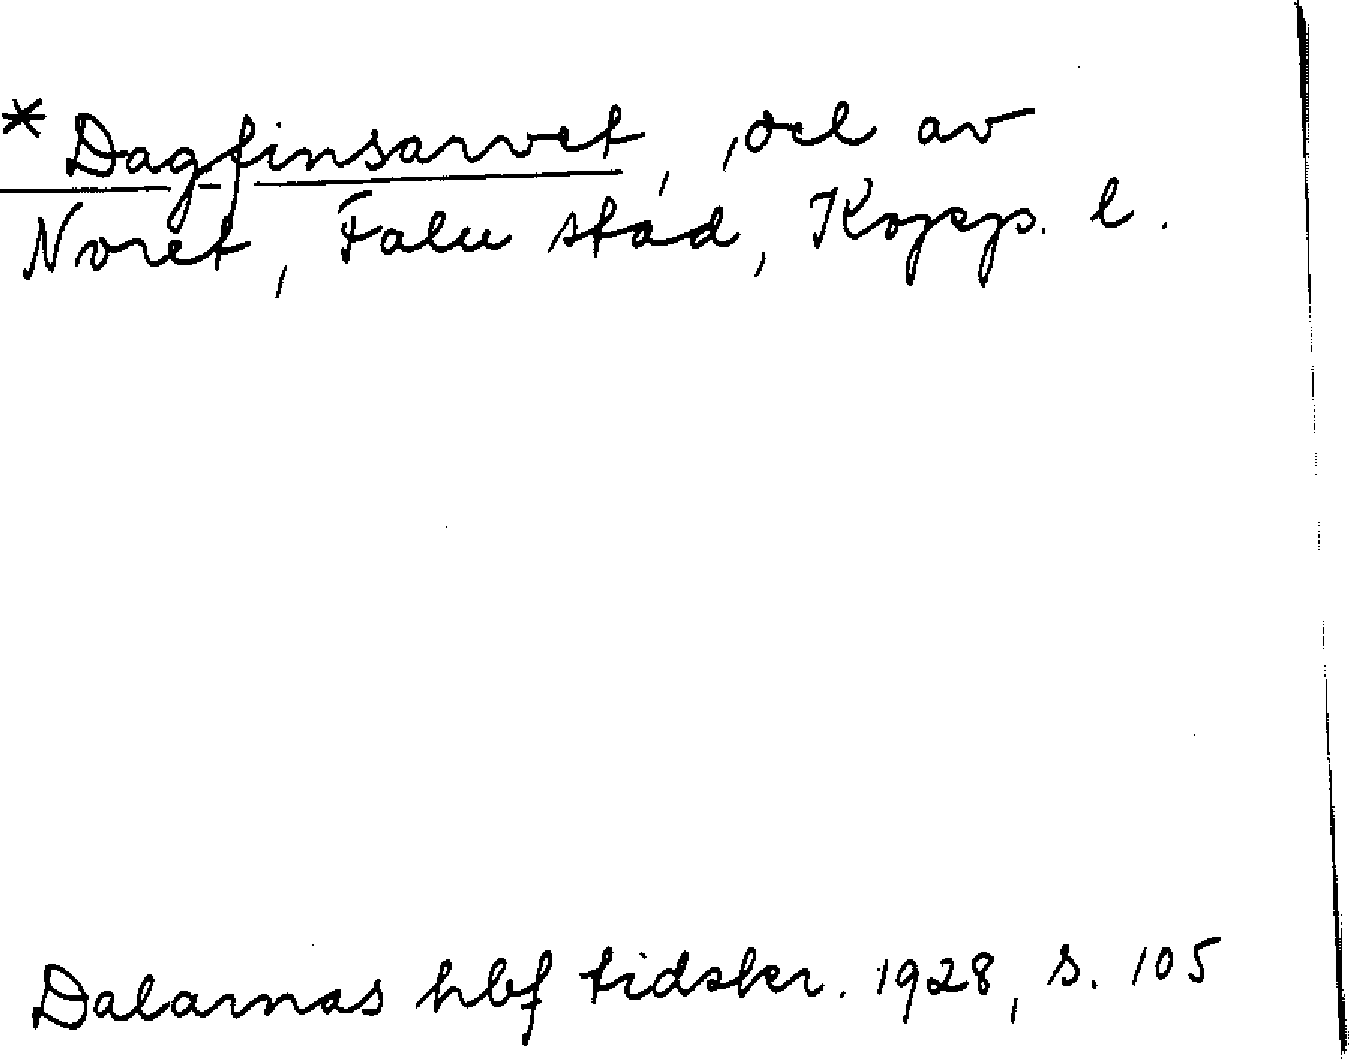 * Dagfinsarvet, del av
Noret, Falu stad, Kopp. l.
Dalarnas hbf tidskr. 1928, s. 105